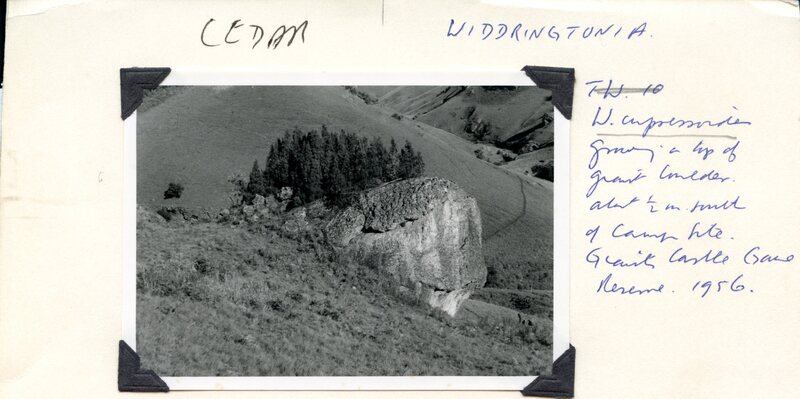 CEDAR
WIDDRINGTONIA.
T.W. 10
W. cupressoides
growing on top of
giant boulder.
about ½ m. south
of Camp Site.
Giants Castle Game
Reserve. 1956.